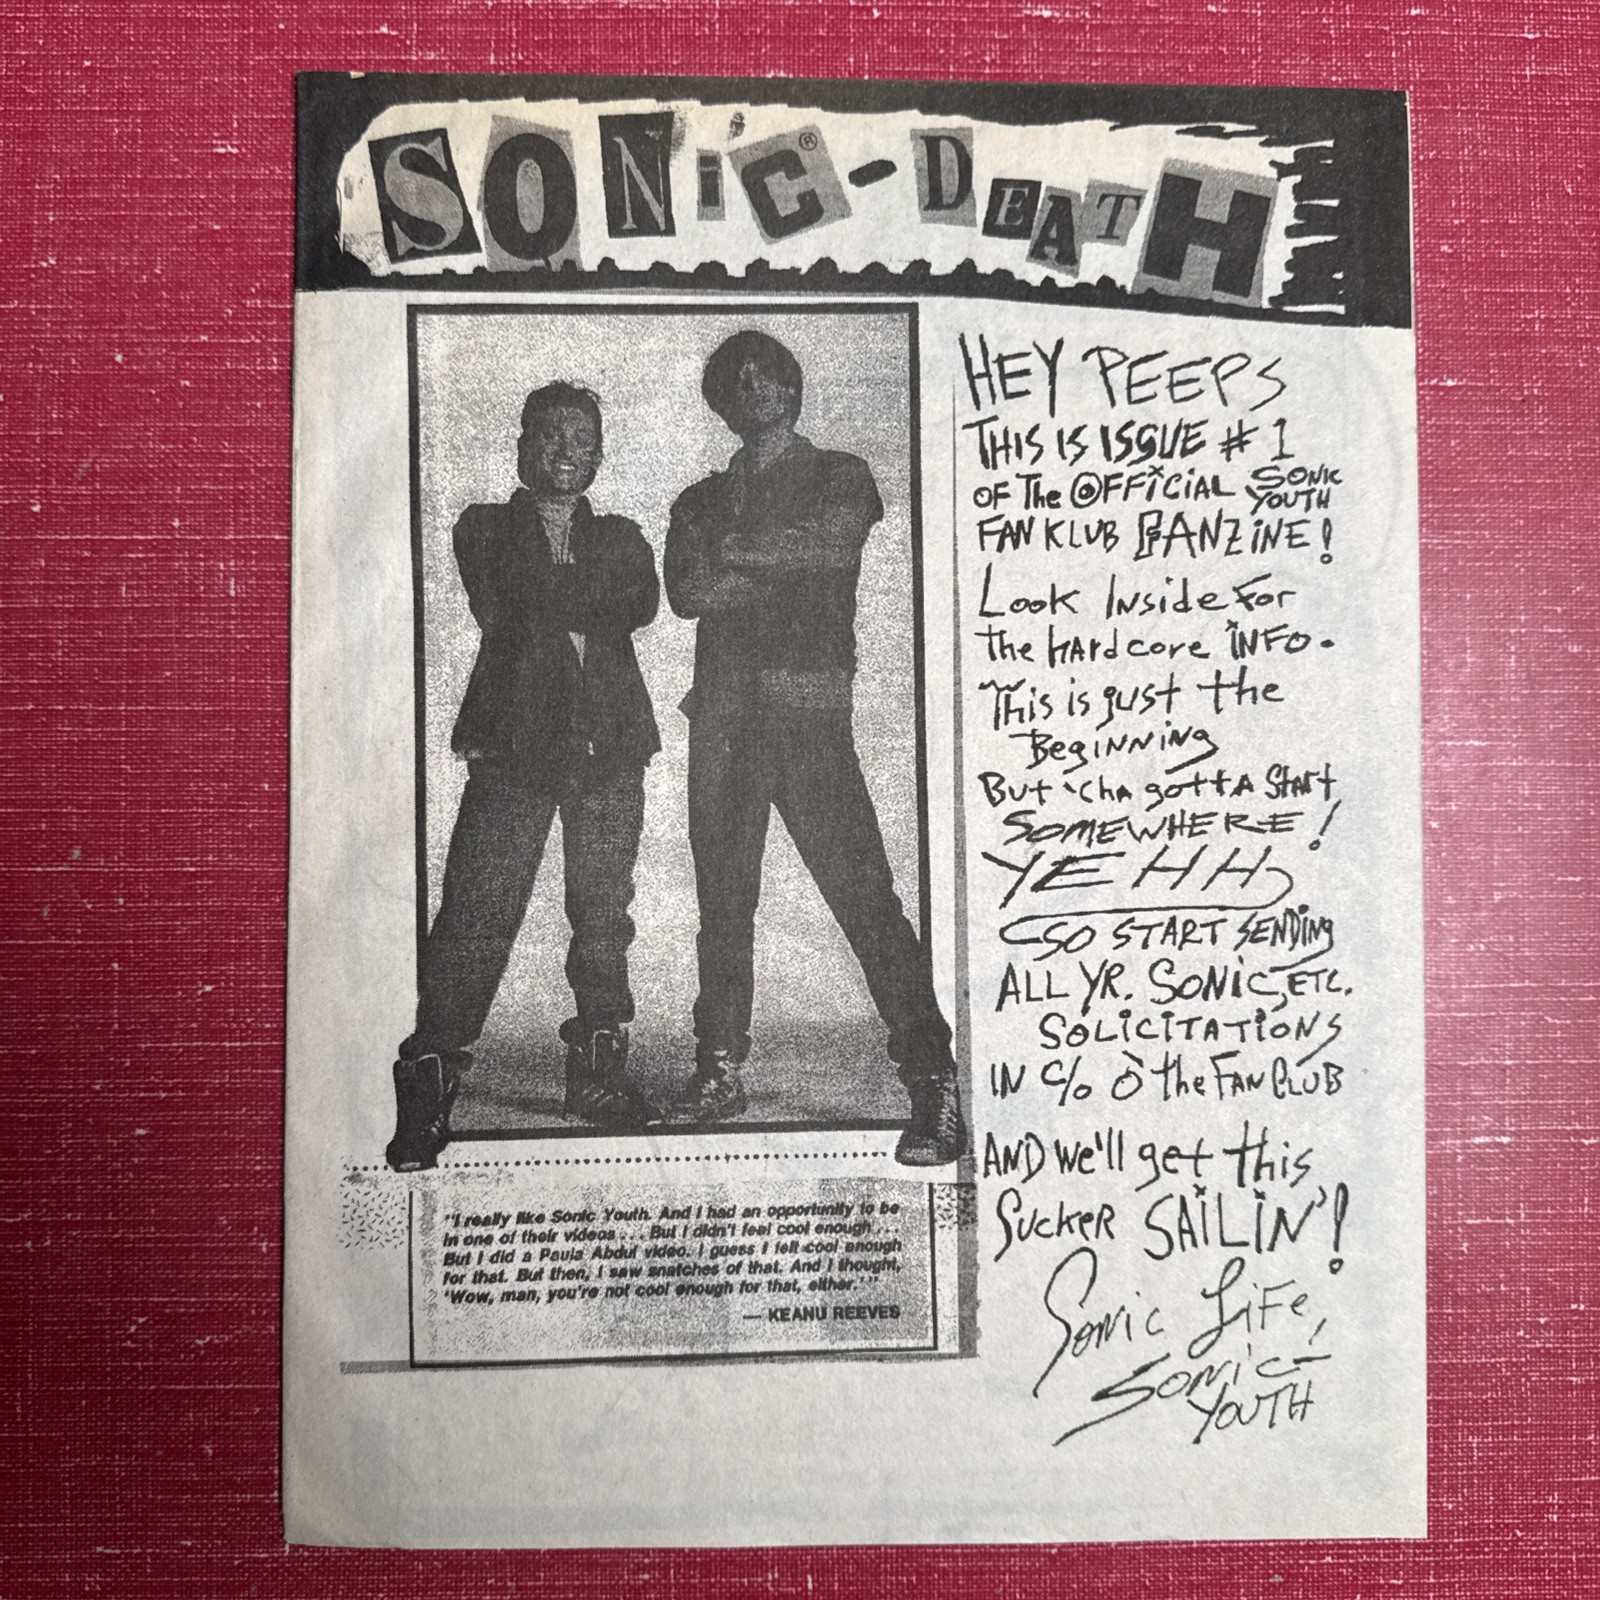 SONiC®-DEATH
HEY PEEPS
THIS IS ISSUE # 1
OF The OFFiCiAL SONIC YOUTH
FAN KLUB FANZiNE!
Look Inside For
the hardcore iNFO.
This is just the
Beginning
But 'cha gotta Start
SOMEWHERE!
YEHH
SO START SENDiNg
ALL YR. SONiC, ETC.
SOLiCiTATiONS
IN c/o O the FAN CLUB
AND We'll get this
Sucker SAiLiN'!
Sonic LiFe,
Sonic-
YOUTH
"I really like Sonic Youth. And I had an opportunity to be
in one of their videos . . . But I didn't feel cool enough . . .
But I did a Paula Abdul video. I guess I felt cool enough
for that. But then, I saw snatches of that. And I thought,
'Wow, man, you're not cool enough for that, either.' "
— KEANU REEVES